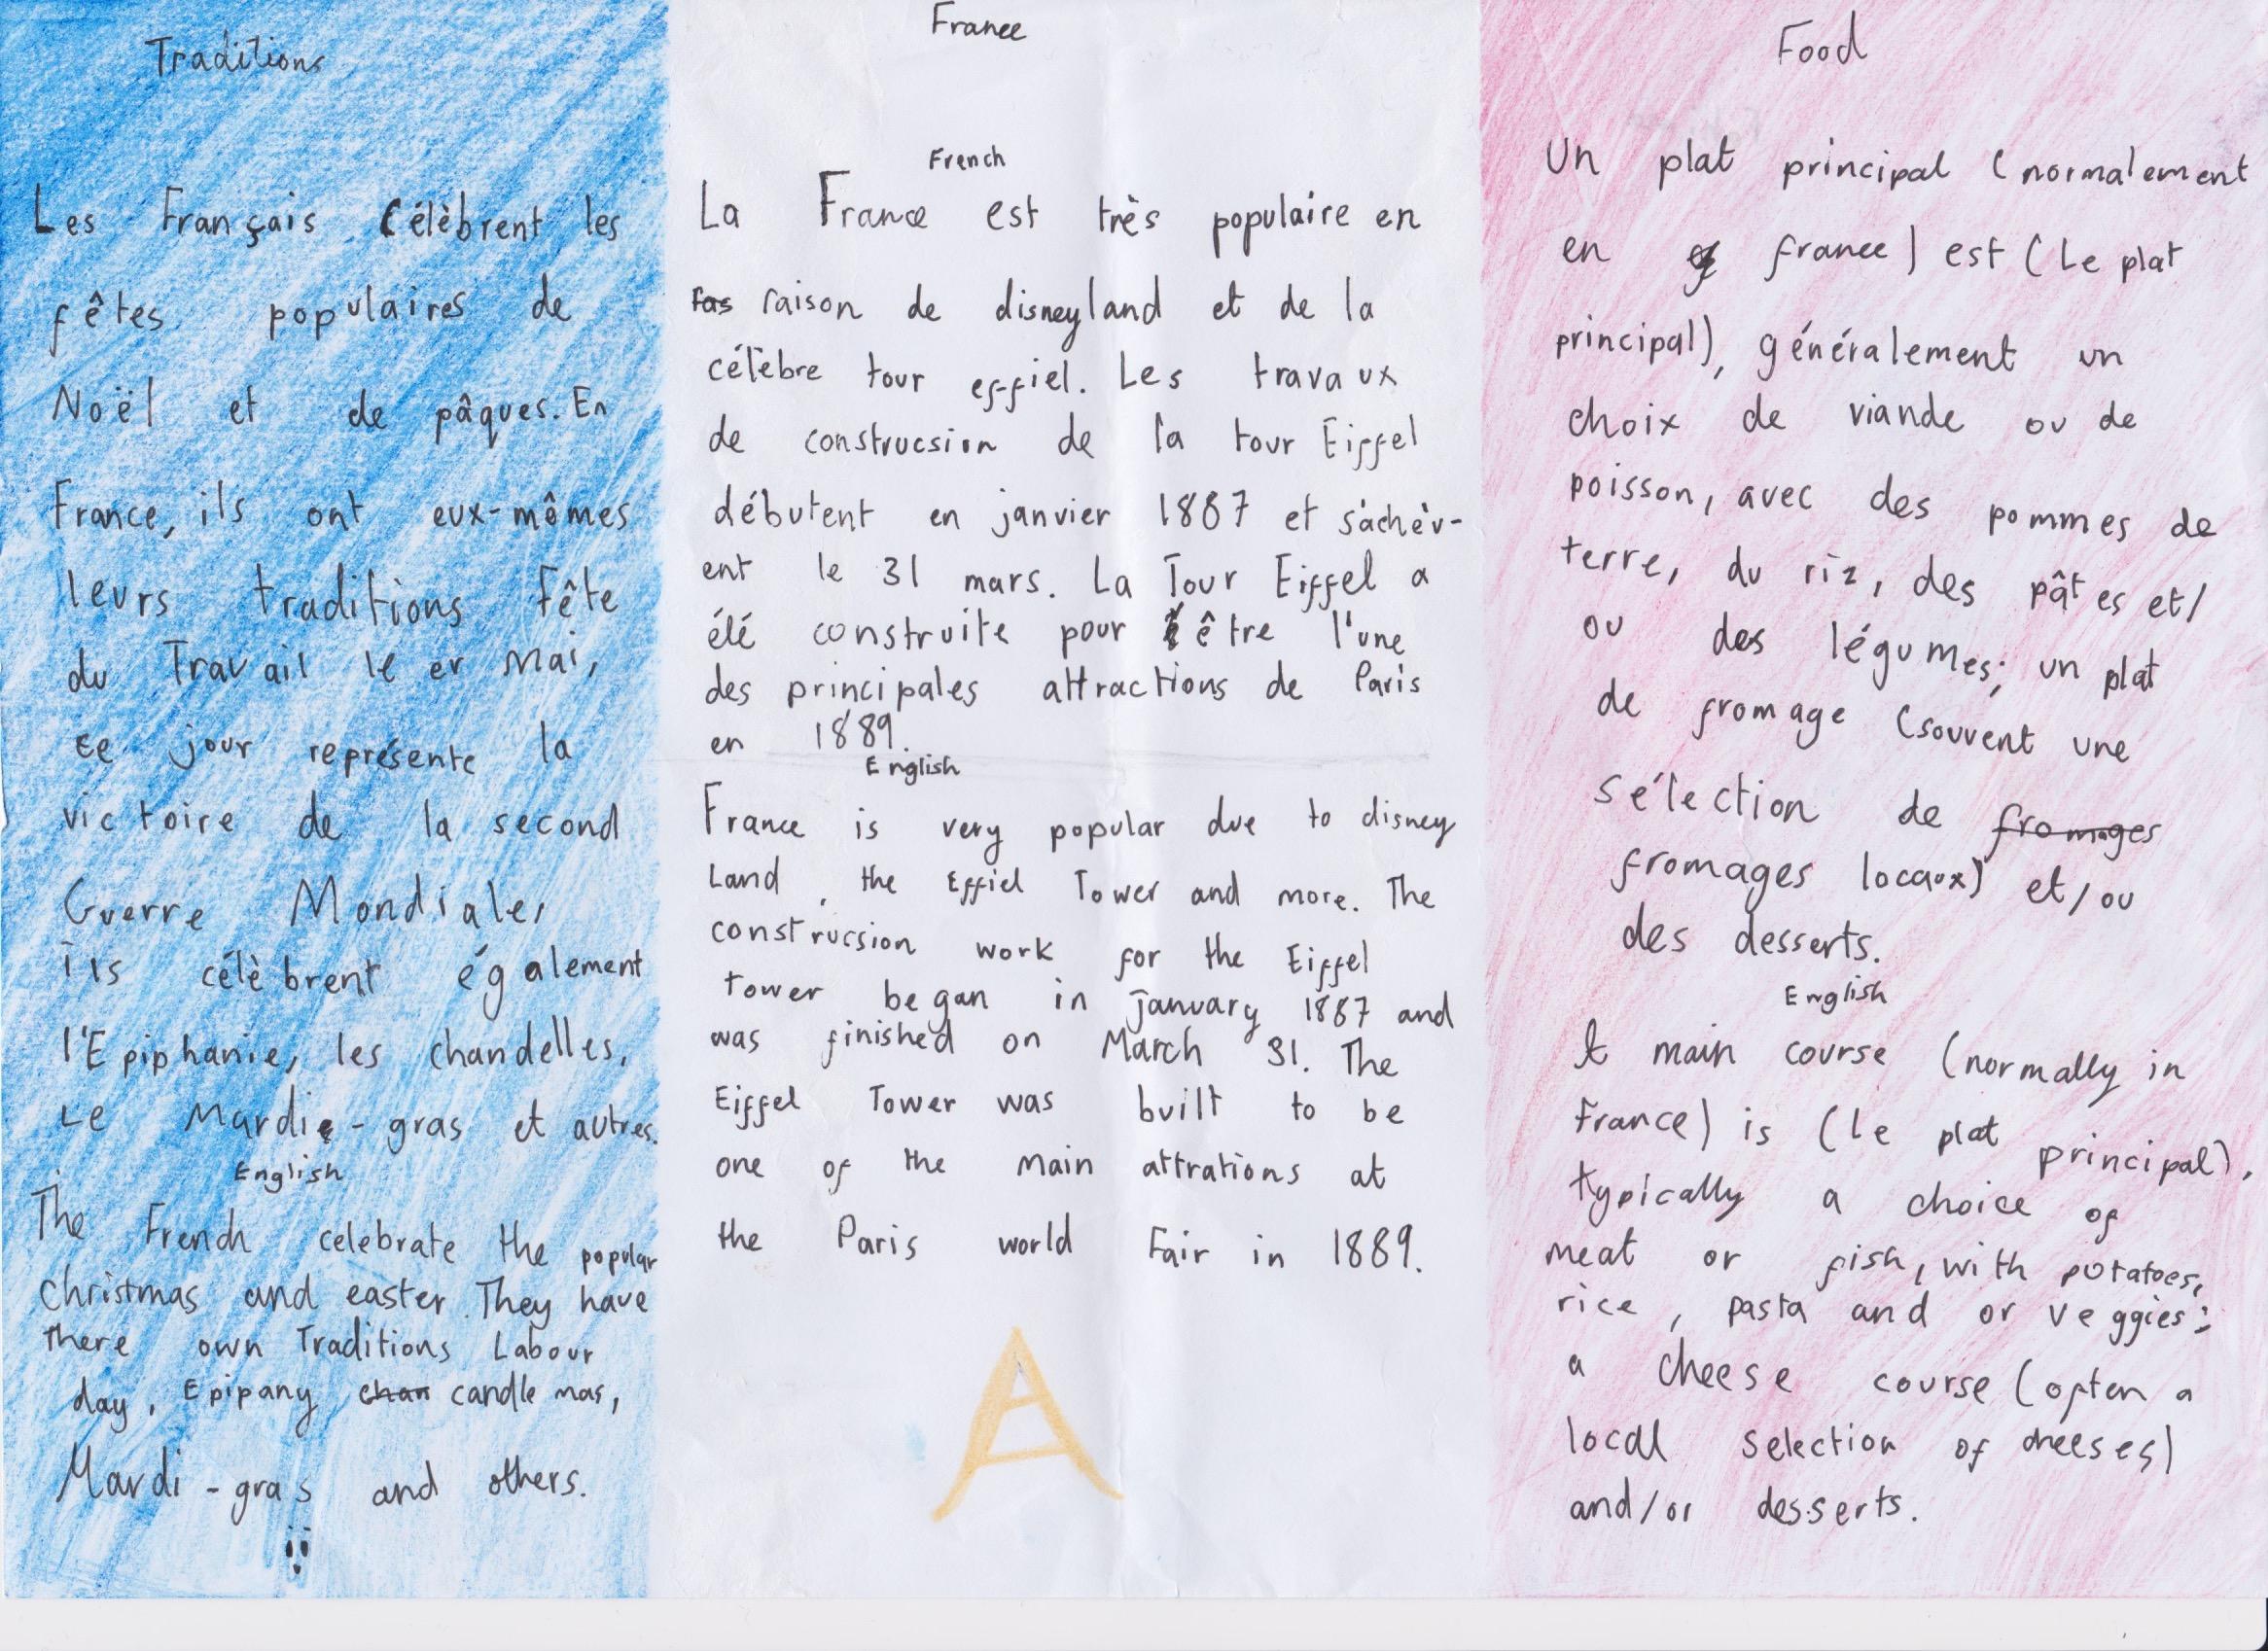 Traditions
Les Français Célèbrent les
fêtes populaires de
Noël et de pâques. En
France, ils ont eux-mêmes
leurs traditions Fête
du Travail le er Mai,
ce jour représente la
victoire de la second
Guerre Mondiale,
ils célèbrent également
l'Epiphanie, les chandelles,
Le Mardi-gras et autres.
English
The French celebrate the popular
christmas and easter. They have
there own Traditions Labour
day, Epipany chan candle mas,
Mardi-gras and others.
France
French
La France est très populaire en
ras raison de disneyland et de la
célèbre tour effiel. Les travaux
de construcsion de la tour Eiffel
débutent en janvier 1887 et s'achèv-
ent le 31 mars. La Tour Eiffel a
été construite pour être l'une
des principales attractions de Paris
en 1889.
English
France is very popular due to disney
Land, the Effiel Tower and more. The
construcsion work for the Eiffel
tower began in january 1887 and
was finished on March 31. The
Eiffel Tower was built to be
one of the main attrations at
the Paris world Fair in 1889.
Food
Un plat principal (normalement
en france) est (Le plat
principal), généralement un
choix de viande ou de
poisson, avec des pommes de
terre, du riz, des pâtes et/
ou des légumes; un plat
de fromage (souvent une
sélection de fromages
fromages locaux) et/ou
des desserts.
English
A main course (normally in
France) is (le plat principal),
typically a choice of
meat or fish, with potatoes,
rice, pasta and or veggies;
a cheese course (often a
local selection of cheeses)
and/or desserts.